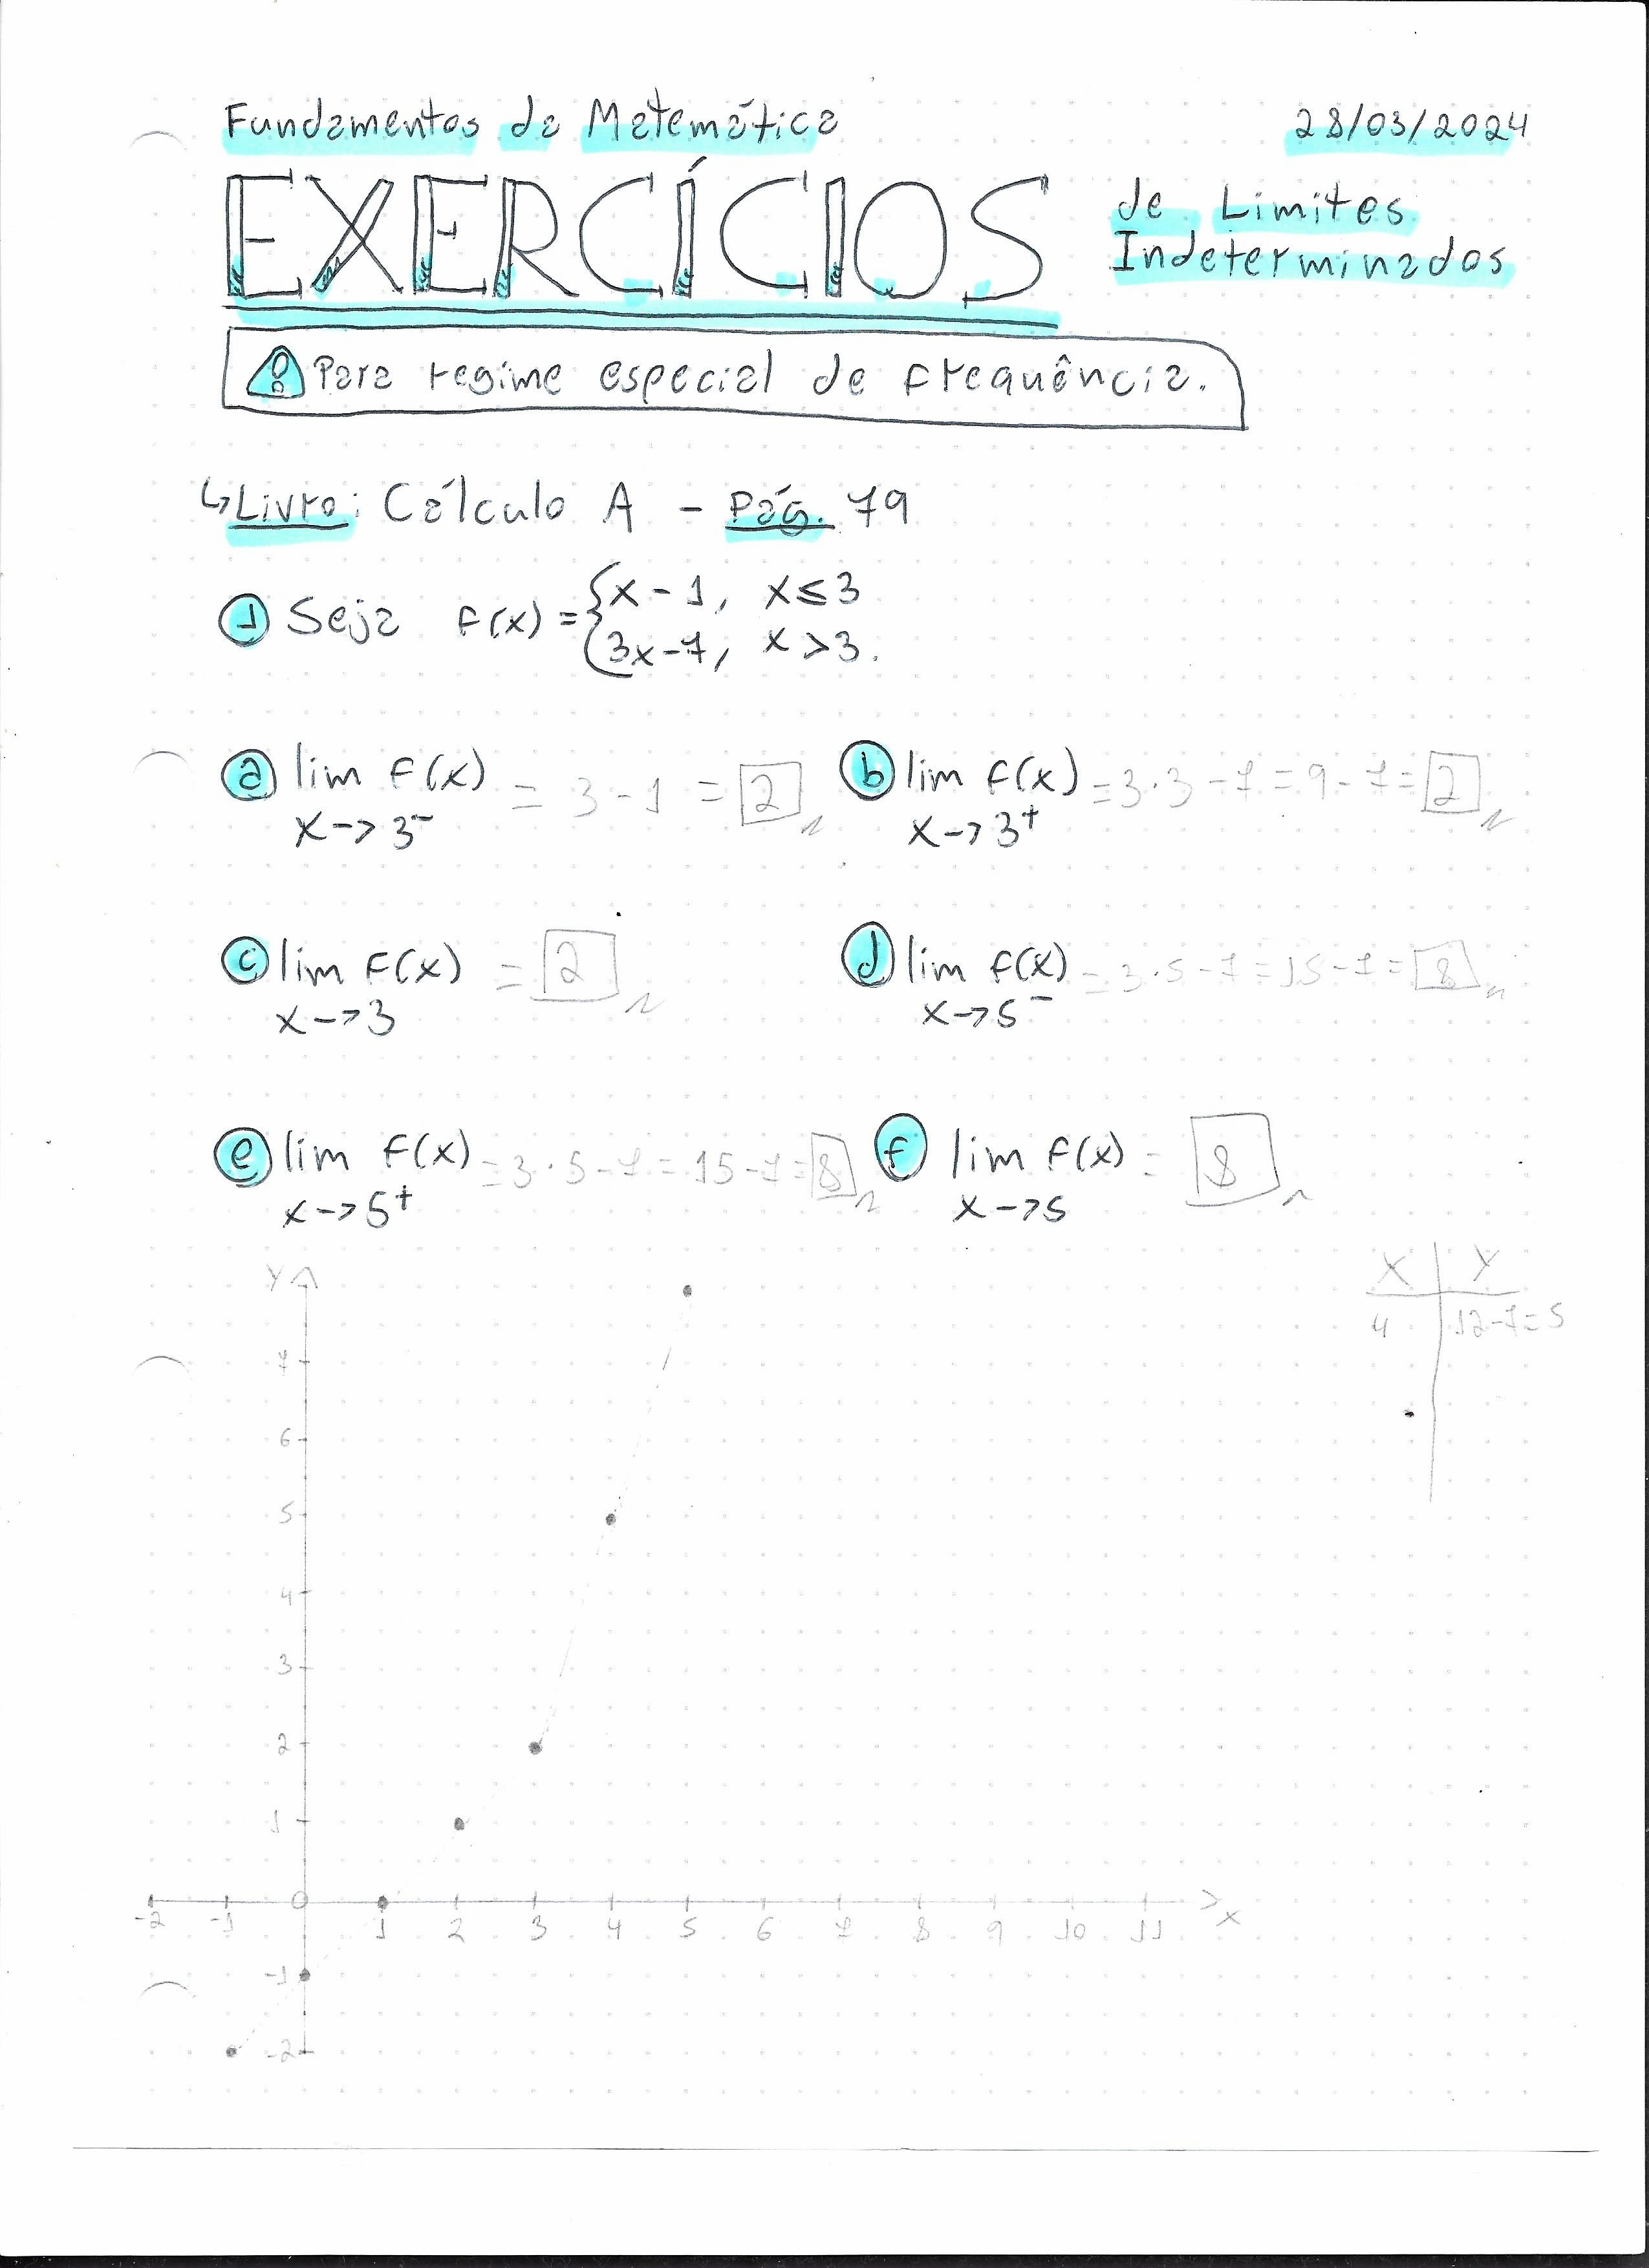 Fundamentos da Matemática 28/03/2024
EXERCÍCIOS de Limites
Indeterminados
Para regime especial de frequência.
↳ Livro: Cálculo A - Pág. 79
1 Seja f(x) = { x - 1, x ≤ 3
3x - 7, x > 3.
a lim f(x) = 3 - 1 = 2
x -> 3⁻
b lim f(x) = 3 · 3 - 7 = 9 - 7 = 2
x -> 3⁺
c lim f(x) = 2
x -> 3
d lim f(x) = 3 · 5 - 7 = 15 - 7 = 8
x -> 5⁻
e lim f(x) = 3 · 5 - 7 = 15 - 7 = 8
x -> 5⁺
f lim f(x) = 8
x -> 5
X Y
4 12 - 7 = 5
Y
7
6
5
4
3
2
1
0
-2 -1 1 2 3 4 5 6 7 8 9 10 11 x
-1
-2